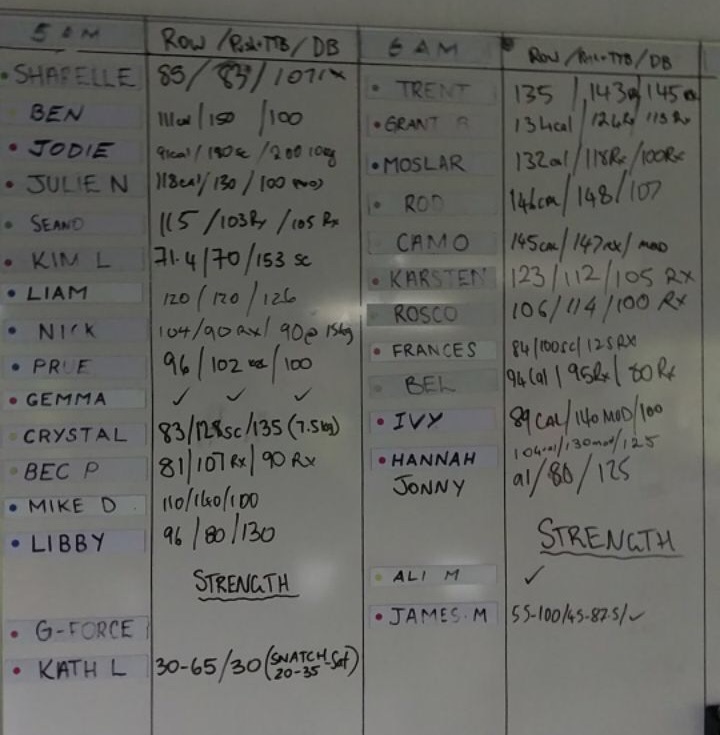 5 AM ROW / Push+TTB / DB
SHARELLE 85 / 83 / 107
BEN 111cal / 150 / 100
JODIE 91cal / 180sc / 200 10kg
JULIE N 118cal / 130 / 100 mod
SEANO 115 / 103Rx / 105 Rx
KIM L 71.4 / 70 / 153 sc
LIAM 120 / 120 / 126
NICK 104 / 90 RX / 90@15kg
PRUE 96 / 102 / 100
GEMMA ✓ ✓ ✓
CRYSTAL 83 / 128sc / 135 (7.5kg)
BEC P 81 / 107 Rx / 90 RX
MIKE D 110 / 140 / 100
LIBBY 96 / 80 / 130
STRENGTH
G-FORCE
KATH L 30-65 / 30 (SNATCH Set 20-35)
6 AM ROW / TTB / DB
TRENT 135 / 143 / 145
GRANT R 134cal / 126Rx / 115 Rx
MOSLAR 132cal / 118Rx / 100Rx
ROD 146cal / 148 / 107
CAMO 145cal / 147RX / mod
KARSTEN 123 / 112 / 105 RX
ROSCO 106 / 114 / 100 Rx
FRANCES 84 / 100sc / 125 RX
BEL 94 Cal / 95Rx / 80 Rx
IVY 89 CAL / 140 MOD / 100
HANNAH 104cal / 130mod / 125
JONNY 91 / 80 / 125
STRENGTH
ALI M ✓
JAMES.M 55-100 / 45-87.5 / ✓